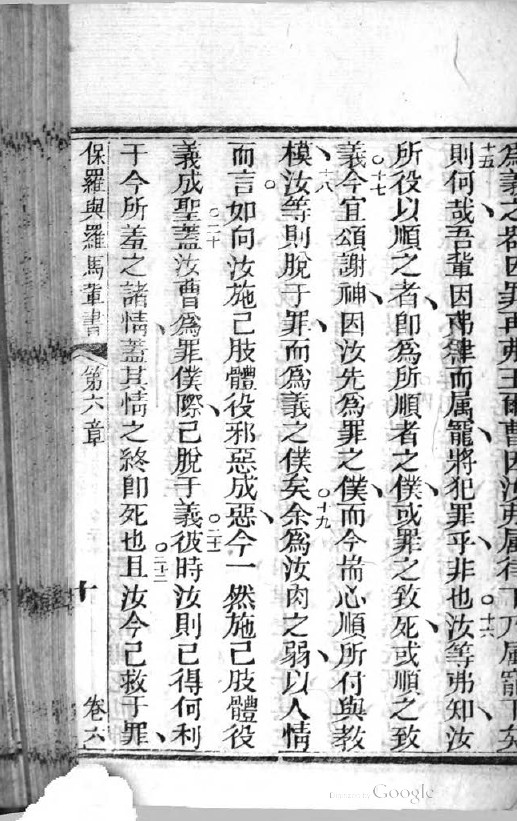 為義之器因罪再弗王爾曹因汝弗屬律下乃屬寵下矣
十五
則何哉吾輩因弗律而属寵將犯罪乎非也汝等弗知汝
十六
所役以順之者卽為所順者之僕或罪之致死或順之致
十七
義今宜頌謝神因汝先為罪之僕而今揣心順所付與教
十八
模汝等則脫于罪而為義之僕矣余為汝肉之弱以人情
十九
而言如向汝施己肢體役邪惡成惡今一然施己肢體役
義成聖蓋汝曹為罪僕際己脫于義彼時汝則已得何利
二十
二十一
于今所羞之諸情蓋其情之終卽死也且汝今已救于罪
二十二
保羅與羅馬輩書 第六章 十 卷六
Digitized by Google